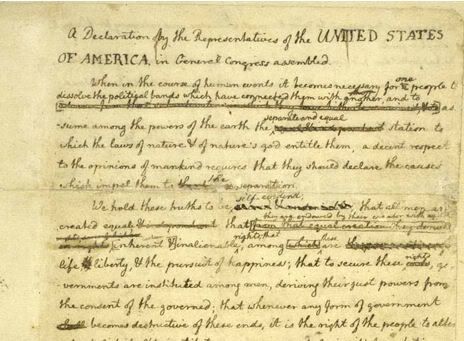 A Declaration by the Representatives of the UNITED STATES
OF AMERICA, in General Congress assembled.
When in the course of human events it becomes necessary for one people to
dissolve the political bands which have connected them with another, and to as
separate and equal
-sume among the powers of the earth the station to
which the laws of nature & of nature's god entitle them, a decent respect
to the opinions of mankind requires that they should declare the causes
which impel them to the separation.
self-evident,
We hold these truths to be that all men are
they are endowed by their creator with
created equal that from that equal creation they derive
rights that
inherent & inalienable, among which are
these
rights
life & liberty, & the pursuit of happiness; that to secure these go
vernments are instituted among men, deriving their just powers from
the consent of the governed; that whenever any form of government
becomes destructive of these ends, it is the right of the people to alter